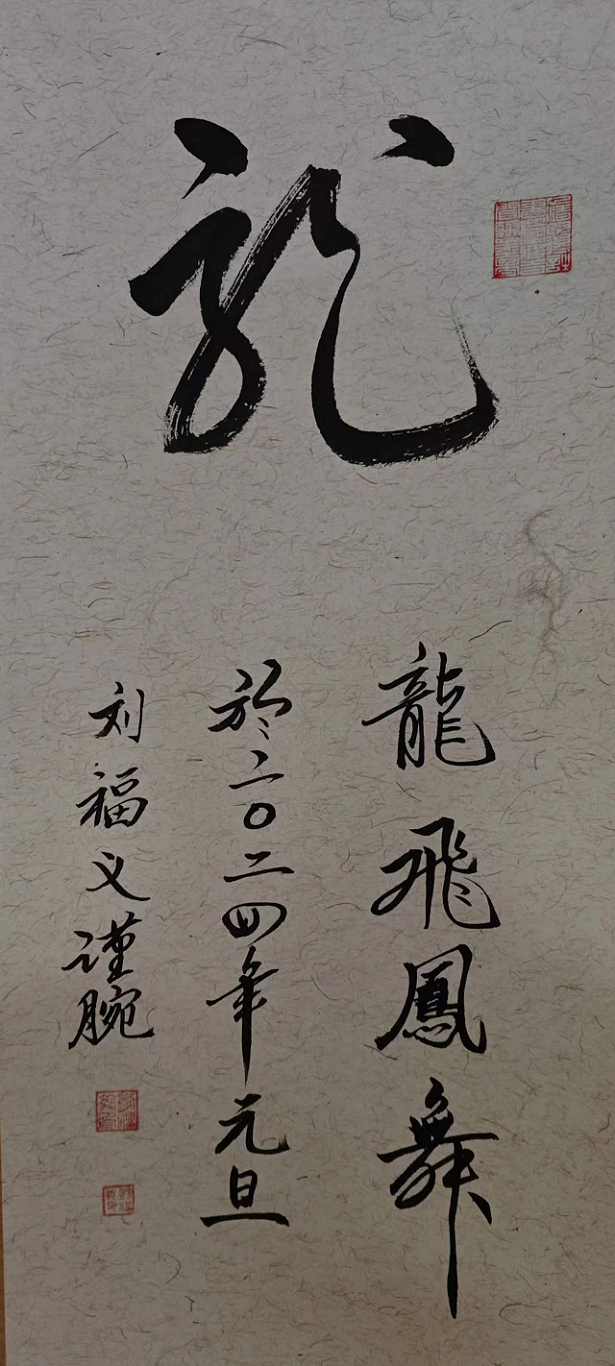 龍
龍飛鳳舞
於二〇二四年元旦
刘福义谨腕